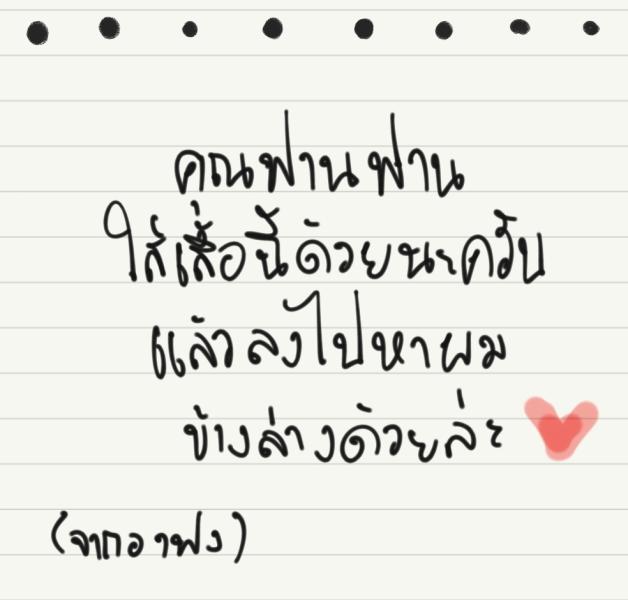 คุณฟานฟ่าน
ใส่เสื้อนี้ด้วยนะครับ
แล้วลงไปหาผม
ข้างล่างด้วยล่ะ
(จากอาฟง)